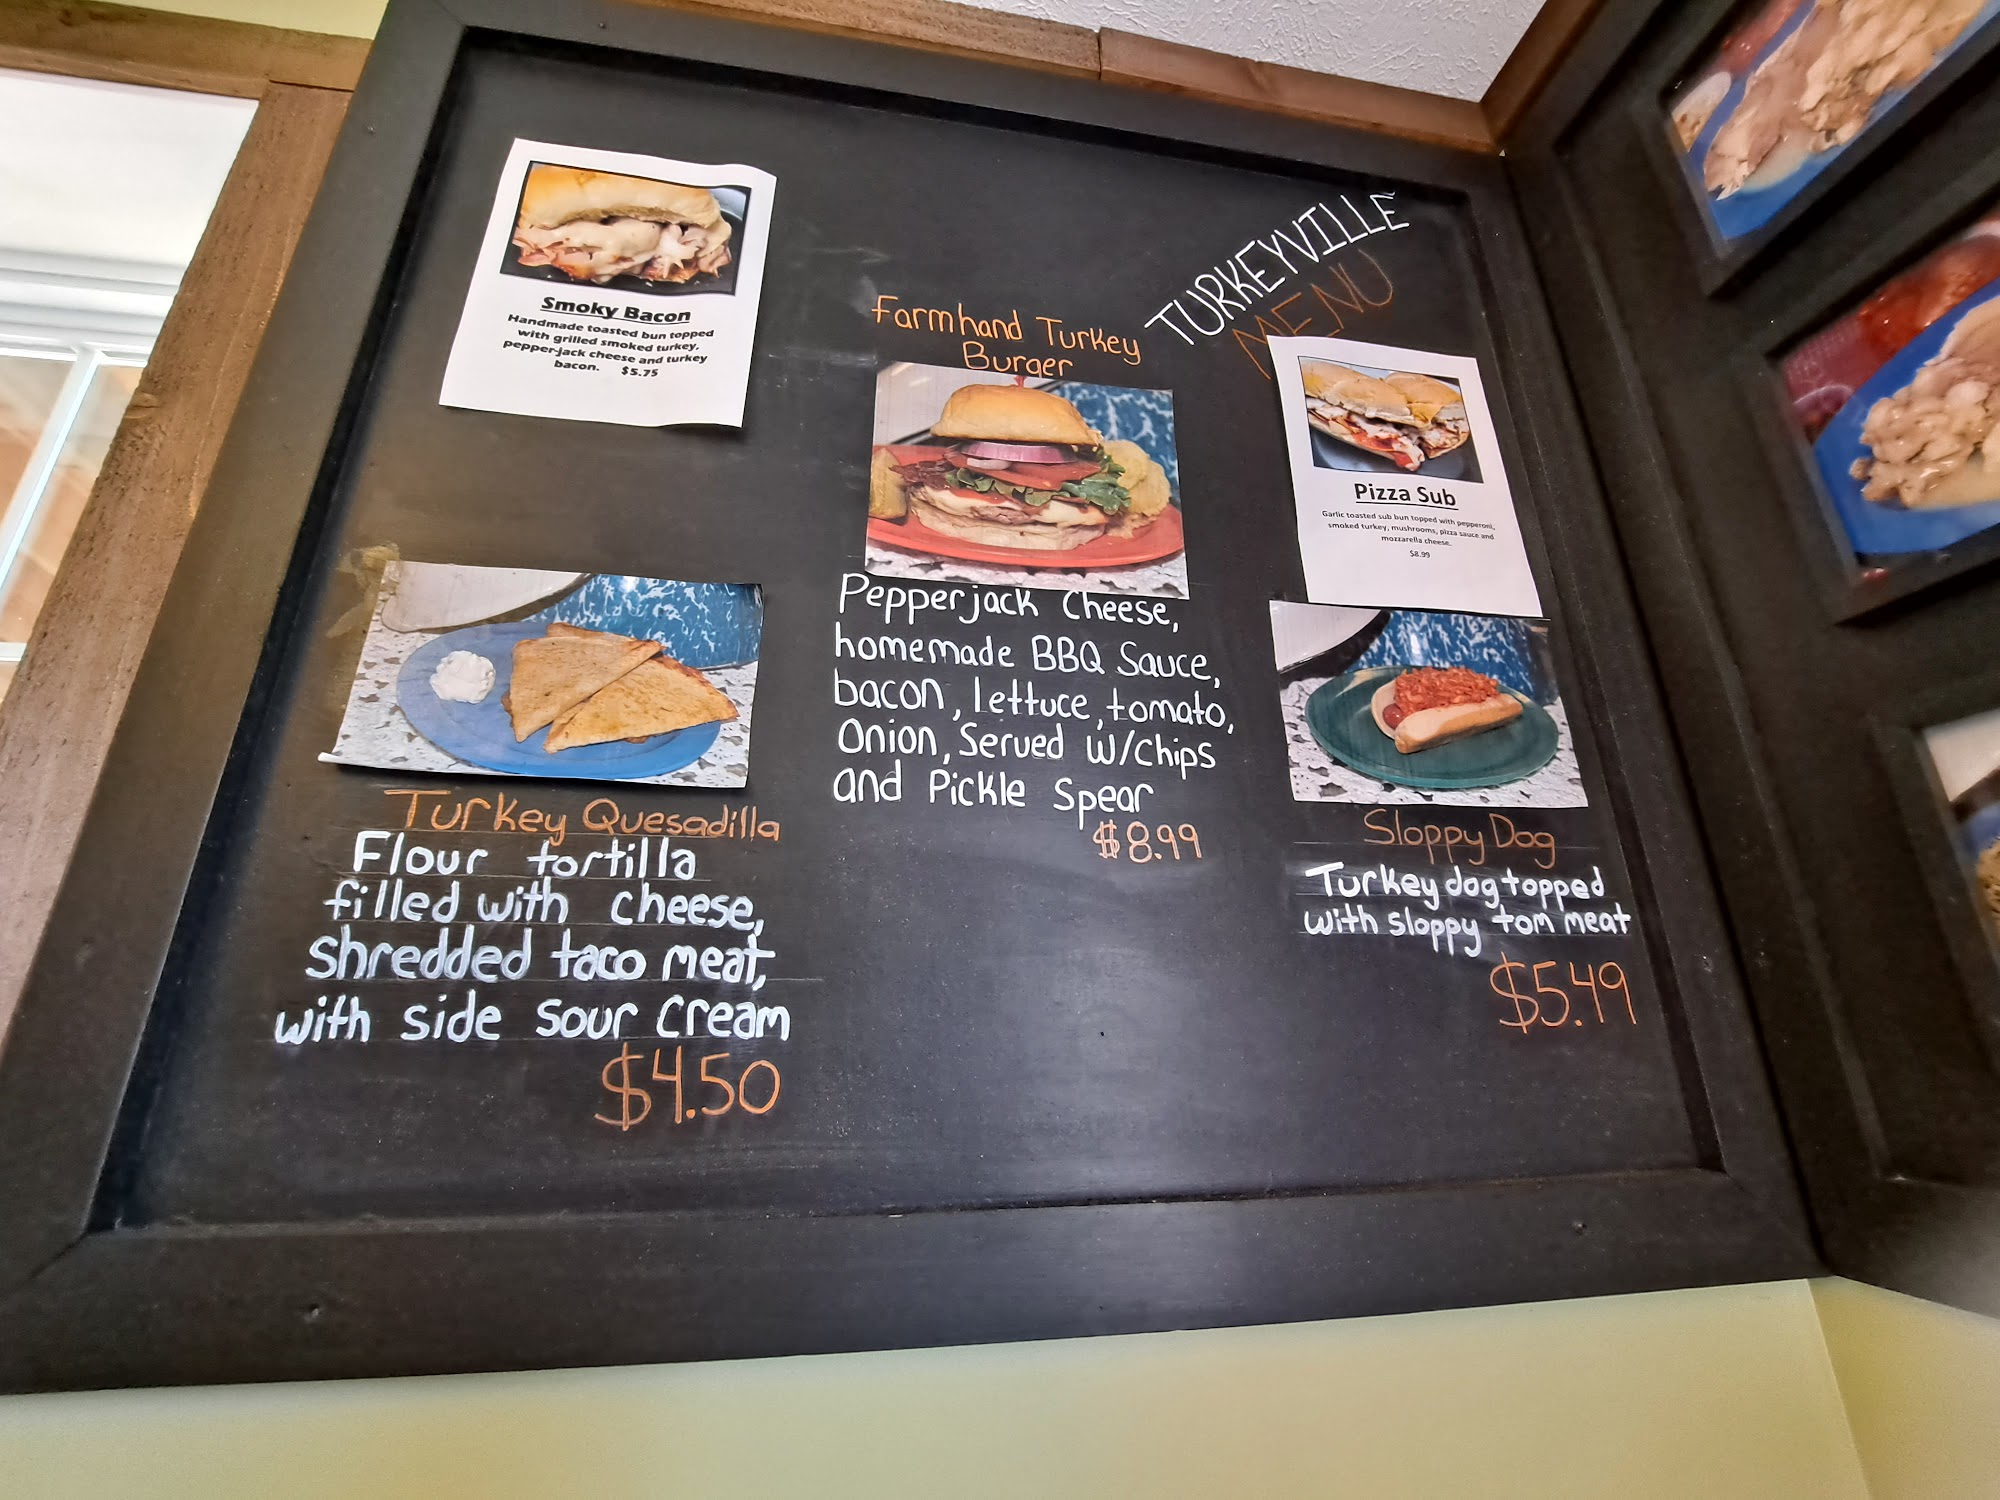 Smoky Bacon
Handmade toasted bun topped
with grilled smoked turkey,
pepper-jack cheese and turkey
bacon. $5.75
TURKEYVILLE
MENU
Farmhand Turkey
Burger
Pepperjack Cheese,
homemade BBQ Sauce,
bacon, lettuce, tomato,
Onion, Served W/Chips
and Pickle Spear
$8.99
Pizza Sub
Garlic toasted sub bun topped with pepperoni,
smoked turkey, mushrooms, pizza sauce and
mozzarella cheese.
$8.99
Turkey Quesadilla
Flour tortilla
filled with cheese,
shredded taco meat,
with side sour cream
$4.50
Sloppy Dog
Turkey dog topped
with sloppy tom meat
$5.49